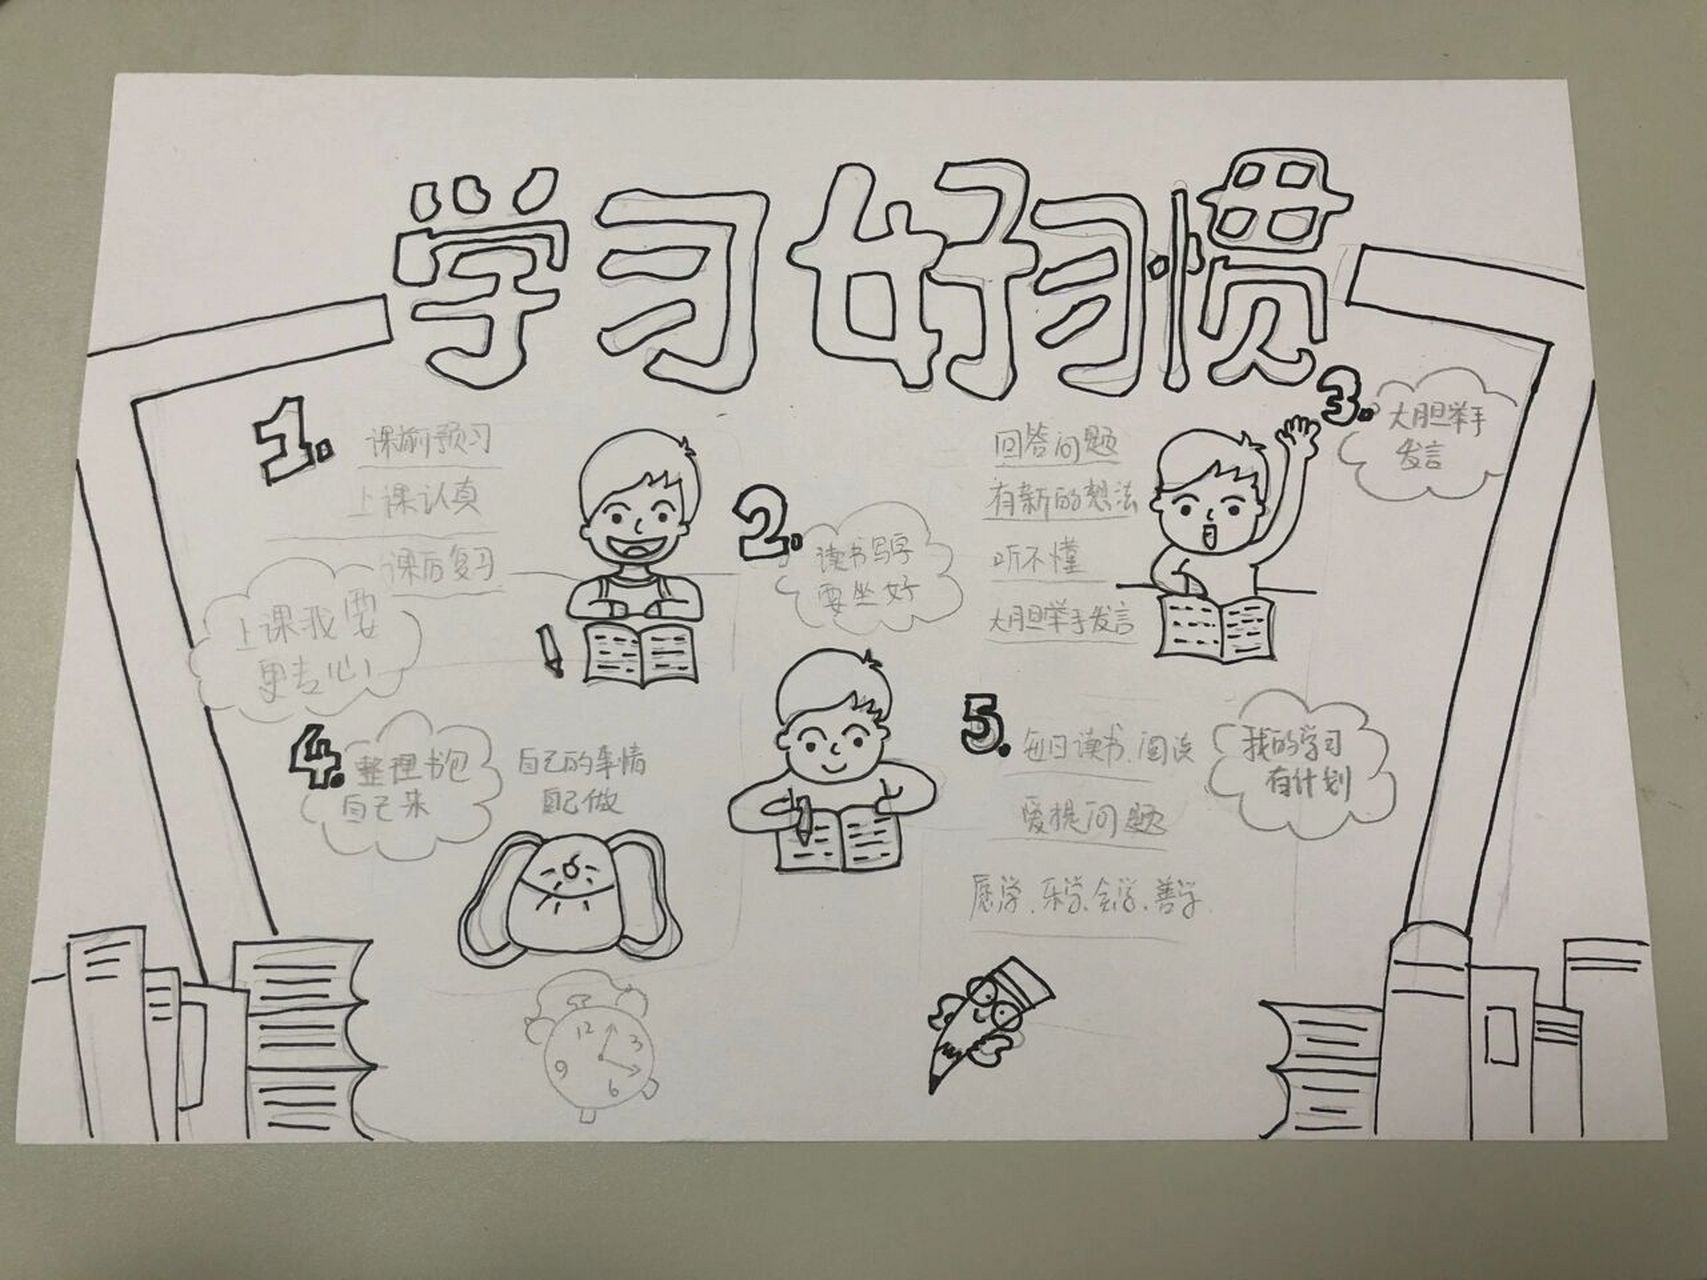 学习好习惯
1.
课前预习
上课认真
课后复习
上课我要
更专心!
2.
读书写字
要坐好
3.
大胆举手
发言
回答问题
有新的想法
听不懂
大胆举手发言
4.
整理书包
自己来
自己的事情
自己做
5.
每日读书、阅读
爱提问题
愿学、乐学、会学、善学
我的学习
有计划
12
3
6
9